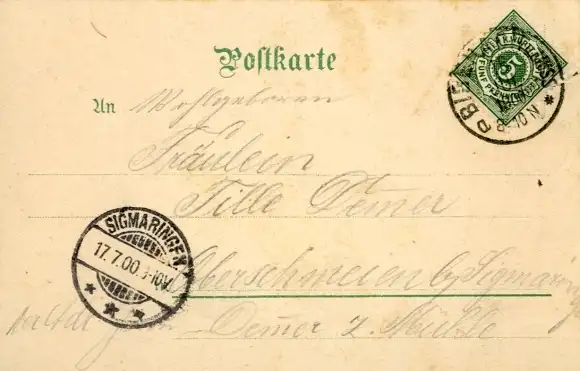 Postkarte
An Wohlgeboren
Fräulein
Tille Demer
Oberschmeien b/ Sigmaringen
Demer z. Mühle
SIGMARINGEN
17.7.00
5
FÜNF PFENNIG
8-10 N